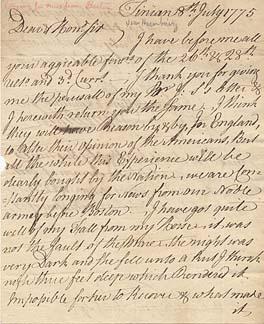 longing for news from Boston
Tinean 18th July 1775
Dear & Hond Sir
I have before me all
your agreeable favrs of the 26th & 28th
ulto and 3d Curt. I thank you for giveing
me the perusall of my Letter &
I herewith return you the same, I think
they will have Reason by & by for England,
to alter their opinion of the Americans, But
all the while this Experience will be
dearly bought by the Nation, we are Cons
tantly longing for News from our Noble
army before Boston. I have got quite
well of my Fall from my Horse it was
not the faults of the Horse the night was
very Dark and he fell into a hole I think
near three feet deep which Rendered it
Impossible for him to Recover & what made
it